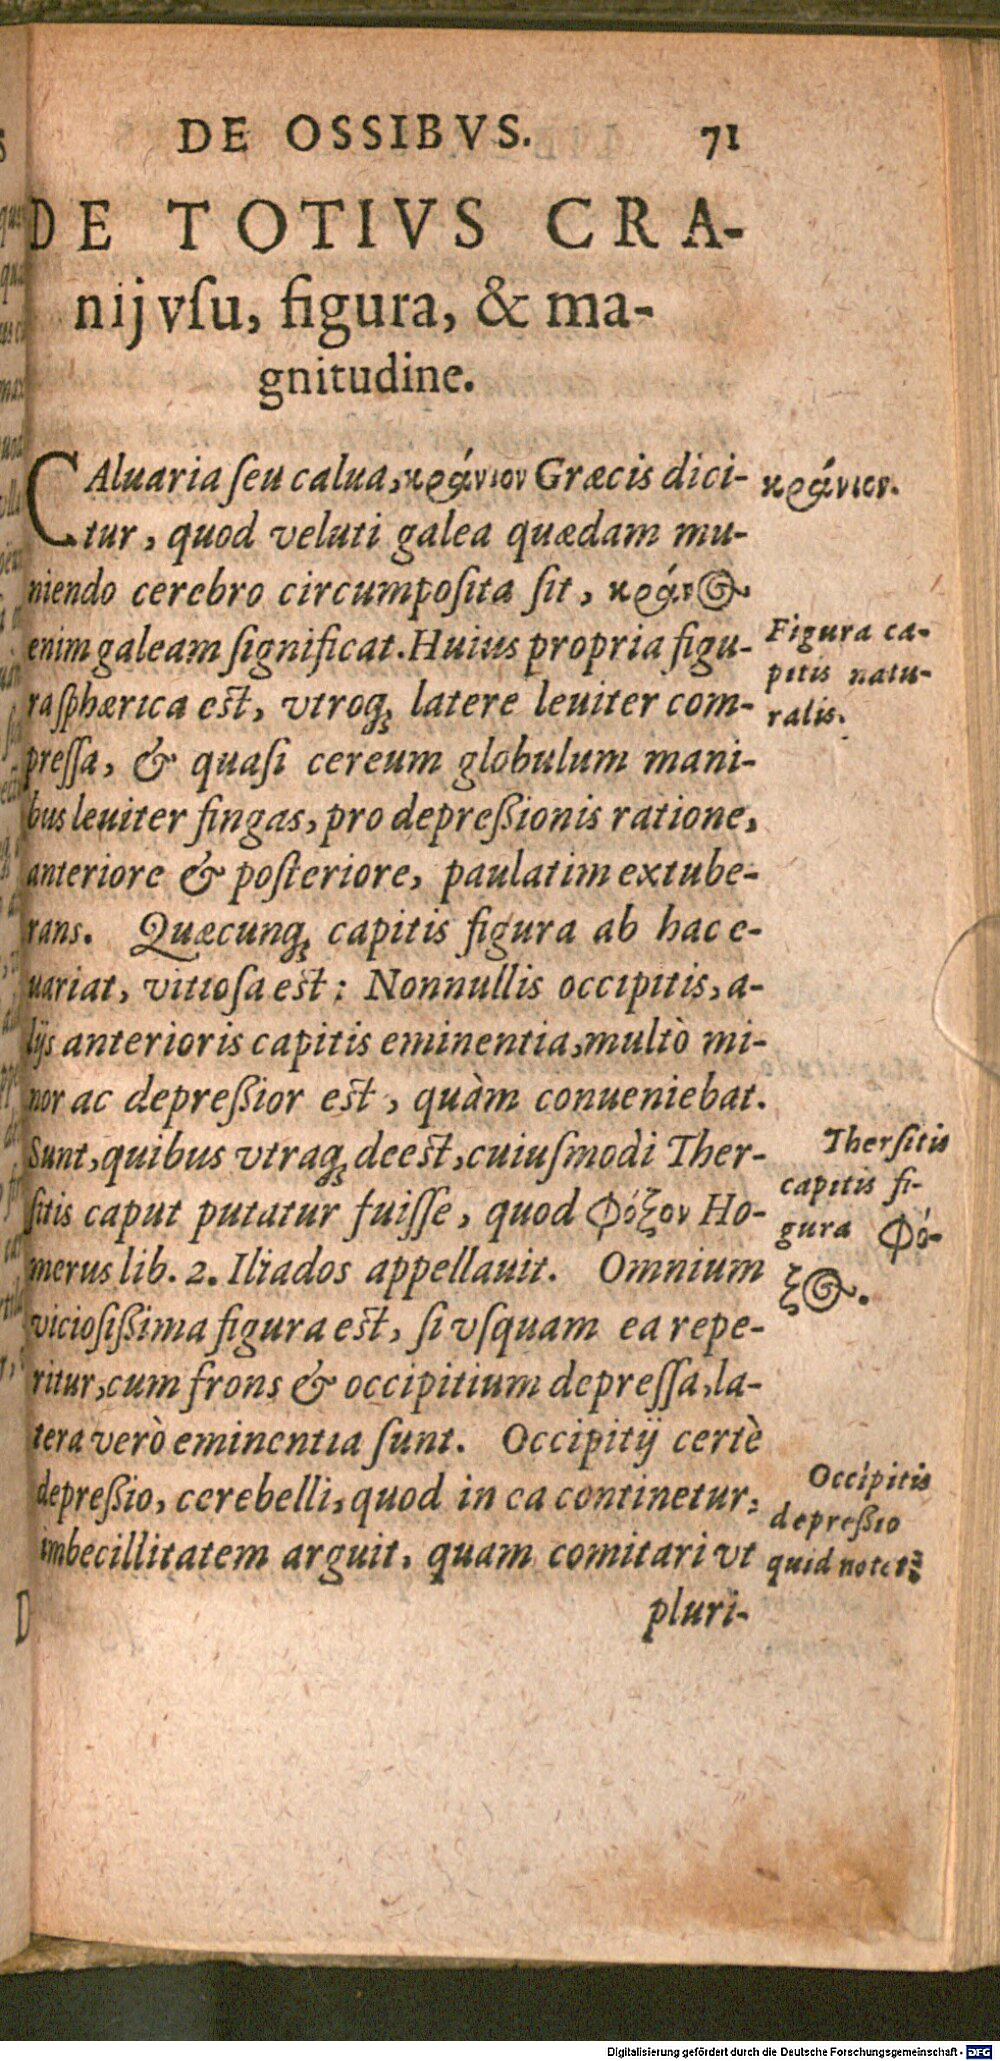 DE OSSIBVS. 71
DE TOTIVS CRA-
nij vſu, figura, & ma-
gnitudine.
CAluaria ſeu calua, κράνιον Græcis dici-
tur, quod veluti galea quædam mu-
niendo cerebro circumpoſita ſit, κράνος
enim galeam ſignificat. Huius propria figu-
ra ſphærica eſt, vtroq; latere leuiter com-
preſſa, & quaſi cereum globulum mani-
bus leuiter fingas, pro depreßionis ratione,
anteriore & poſteriore, paulatim extube-
rans. Quæcunq; capitis figura ab hac e-
uariat, vitioſa eſt: Nonnullis occipitis, a-
lijs anterioris capitis eminentia, multò mi-
nor ac depreßior eſt, quàm conueniebat.
Sunt, quibus vtraq; deeſt, cuiuſmodi Ther-
ſitis caput putatur fuiſſe, quod Φόξον Ho-
merus lib. 2. Iliados appellauit. Omnium
vicioſißima figura eſt, ſi vſquam ea repe-
ritur, cum frons & occipitium depreſſa, la-
tera verò eminentia ſunt. Occipitij certè
depreßio, cerebelli, quod in ea continetur,
imbecillitatem arguit, quam comitari vt
pluri-
κράνιον.
Figura ca-
pitis natu-
ralis.
Therſitis
capitis fi-
gura Φό-
ξος.
Occipitis
depreßio
quid notet?
Digitalisierung gefördert durch die Deutsche Forschungsgemeinschaft - DFG